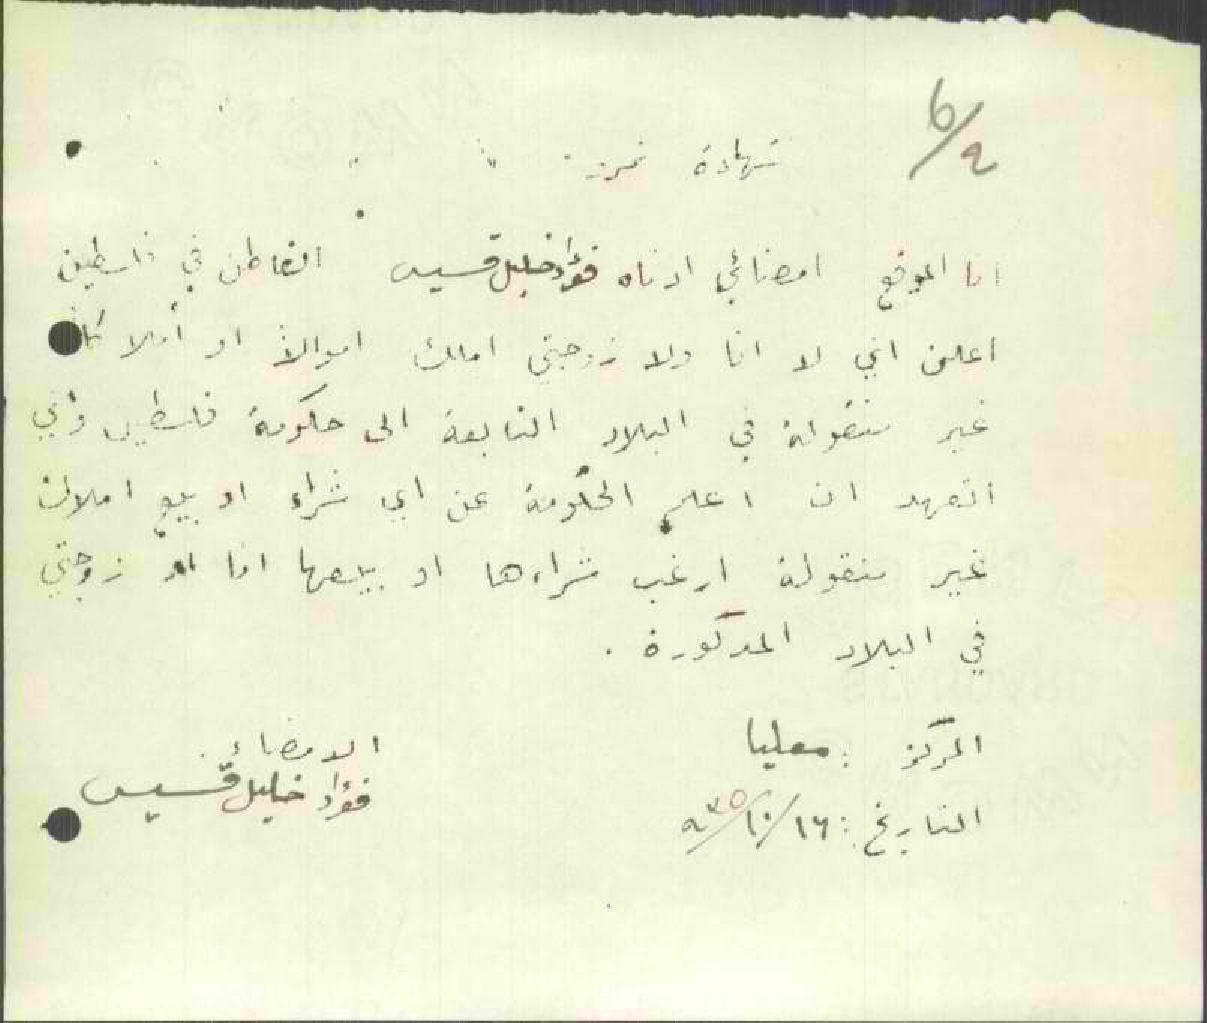 6/2
شهادة نمرة
انا الموقع امضائي ادناه فؤاد خليل قسيس القاطن في فلسطين
اعلن اني لا انا ولا زوجتي املك اموالاً او أملاكاً
غير منقولة في البلاد التابعة الى حكومة فلسطين واني
اتعهد ان اعلم الحكومة عن اي شراء او بيع املاك
غير منقولة ارغب شراءها او بيعها انا او زوجتي
في البلاد المذكورة .
المركز : معليا
التاريخ : ١٦/١٠/٩٣٥
الامضاء
فؤاد خليل قسيس